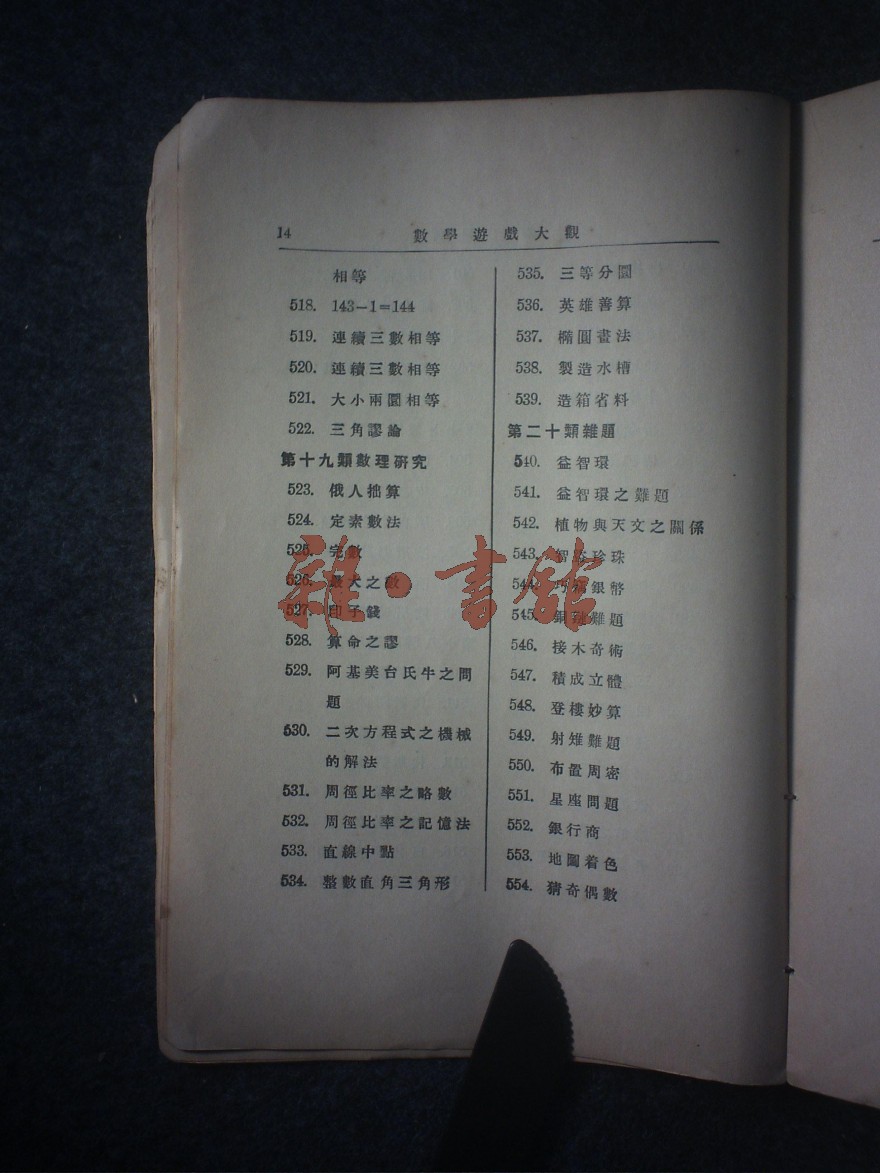 14
數學遊戲大觀
相等
518. 143-1=144
519. 連續三數相等
520. 連續三數相等
521. 大小兩圓相等
522. 三角謬論
第十九類數理研究
523. 俄人拙算
524. 定素數法
525. 完數
526. 最大之數
527. 印子錢
528. 算命之謬
529. 阿基美台氏牛之問
題
530. 二次方程式之機械
的解法
531. 周徑比率之略數
532. 周徑比率之記憶法
533. 直線中點
534. 整數直角三角形
535. 三等分圓
536. 英雄善算
537. 橢圓畫法
538. 製造水槽
539. 造箱省料
第二十類雜題
540. 益智環
541. 益智環之難題
542. 植物與天文之關係
543. 智盜珍珠
544. 巧竊銀幣
545. 銅鏈難題
546. 接木奇術
547. 積成立體
548. 登樓妙算
549. 射雉難題
550. 布置周密
551. 星座問題
552. 銀行商
553. 地圖着色
554. 猜奇偶數
雜·書館